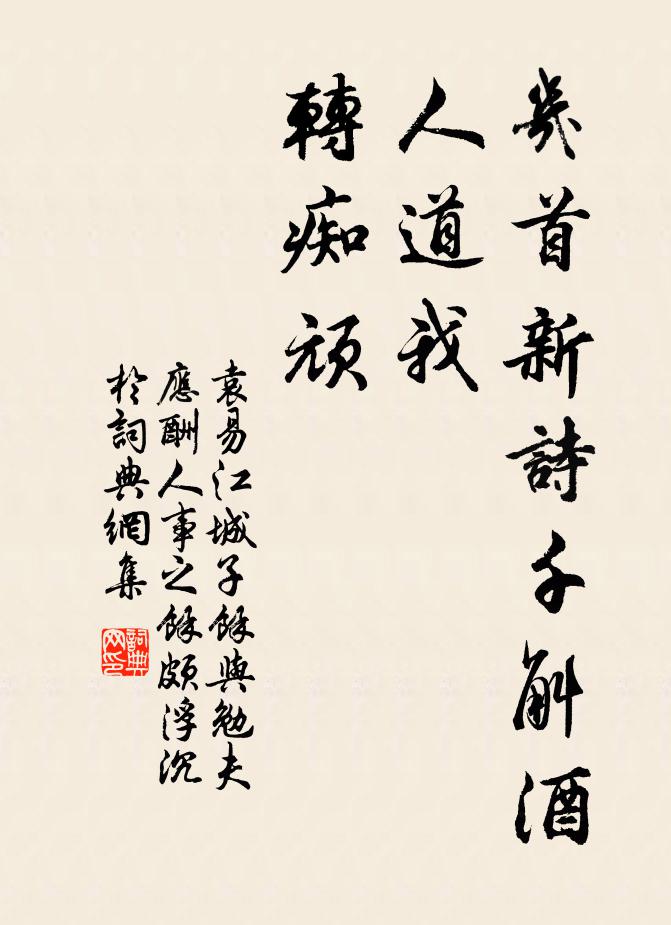 幾首新詩千斛酒
人道我
轉痴頑
袁易江城子餘與勉夫
應酬人事之餘頗浮沉
於詞典網集
詞典网印